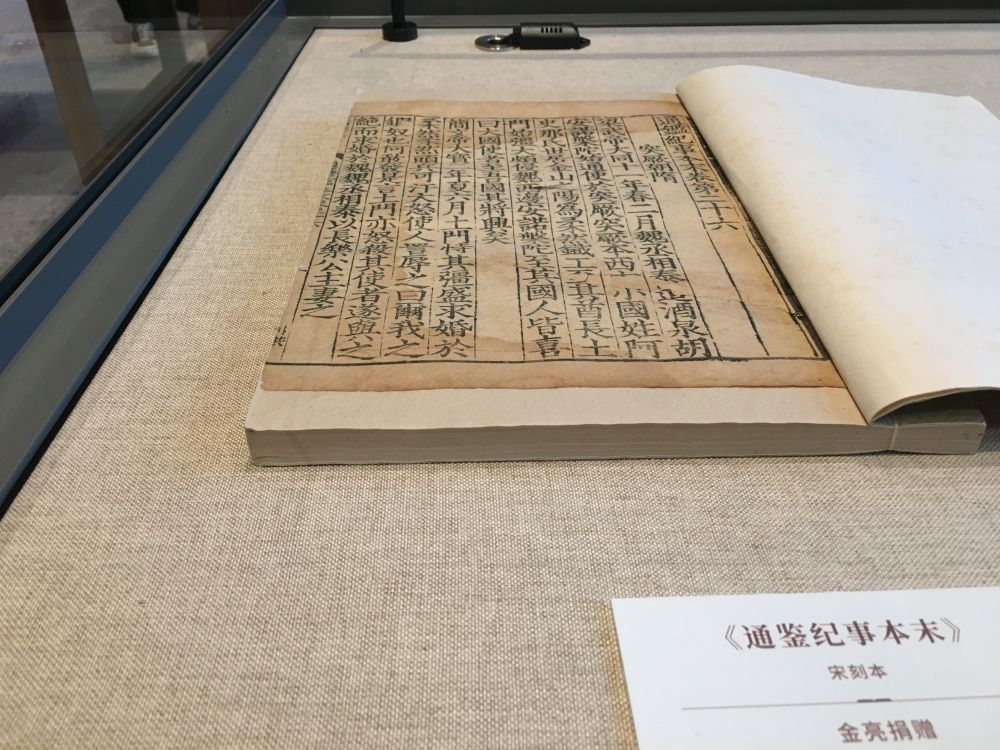 通鑑紀事本末卷第二十六
突厥朝隋
梁武帝大同十一年春二月魏丞相泰遣酒泉胡
安諾槃陁始通使於突厥突厥本西方小國姓阿
史那氏世居金山之陽為柔然鐵工至其酋長土
門始彊大頗侵魏西邊安諾槃陁至其國人皆喜
曰大國使者至吾國其將興矣
簡文帝大寶二年夏六月土門恃其彊盛求婚於
柔然柔然頭兵可汗大怒使人詈辱之曰爾我之
鍛奴也何敢發是言土門亦怒殺其使者遂與之
絕而求婚於魏魏丞相泰以長樂公主妻之
《通鉴纪事本末》
宋刻本
金亮捐赠